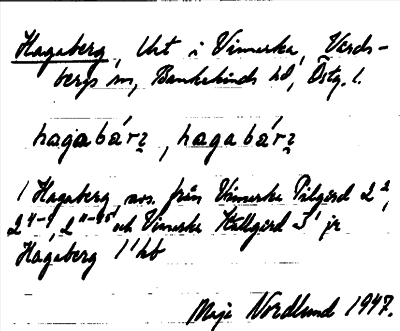 Hageberg, Urt i Vimerka, Vårds-
bergs sn, Bankekinds hd, Östg. l.
hagabárʒ, hagabárʒ
1 Hageberg, avs. från Vimerka Pilgård 2²,
2⁴⁻⁹, 2¹¹⁻¹⁵ och Vimerka Källgård 3¹ jr
Hageberg 1¹ hb
Maja Nordlund 1947.